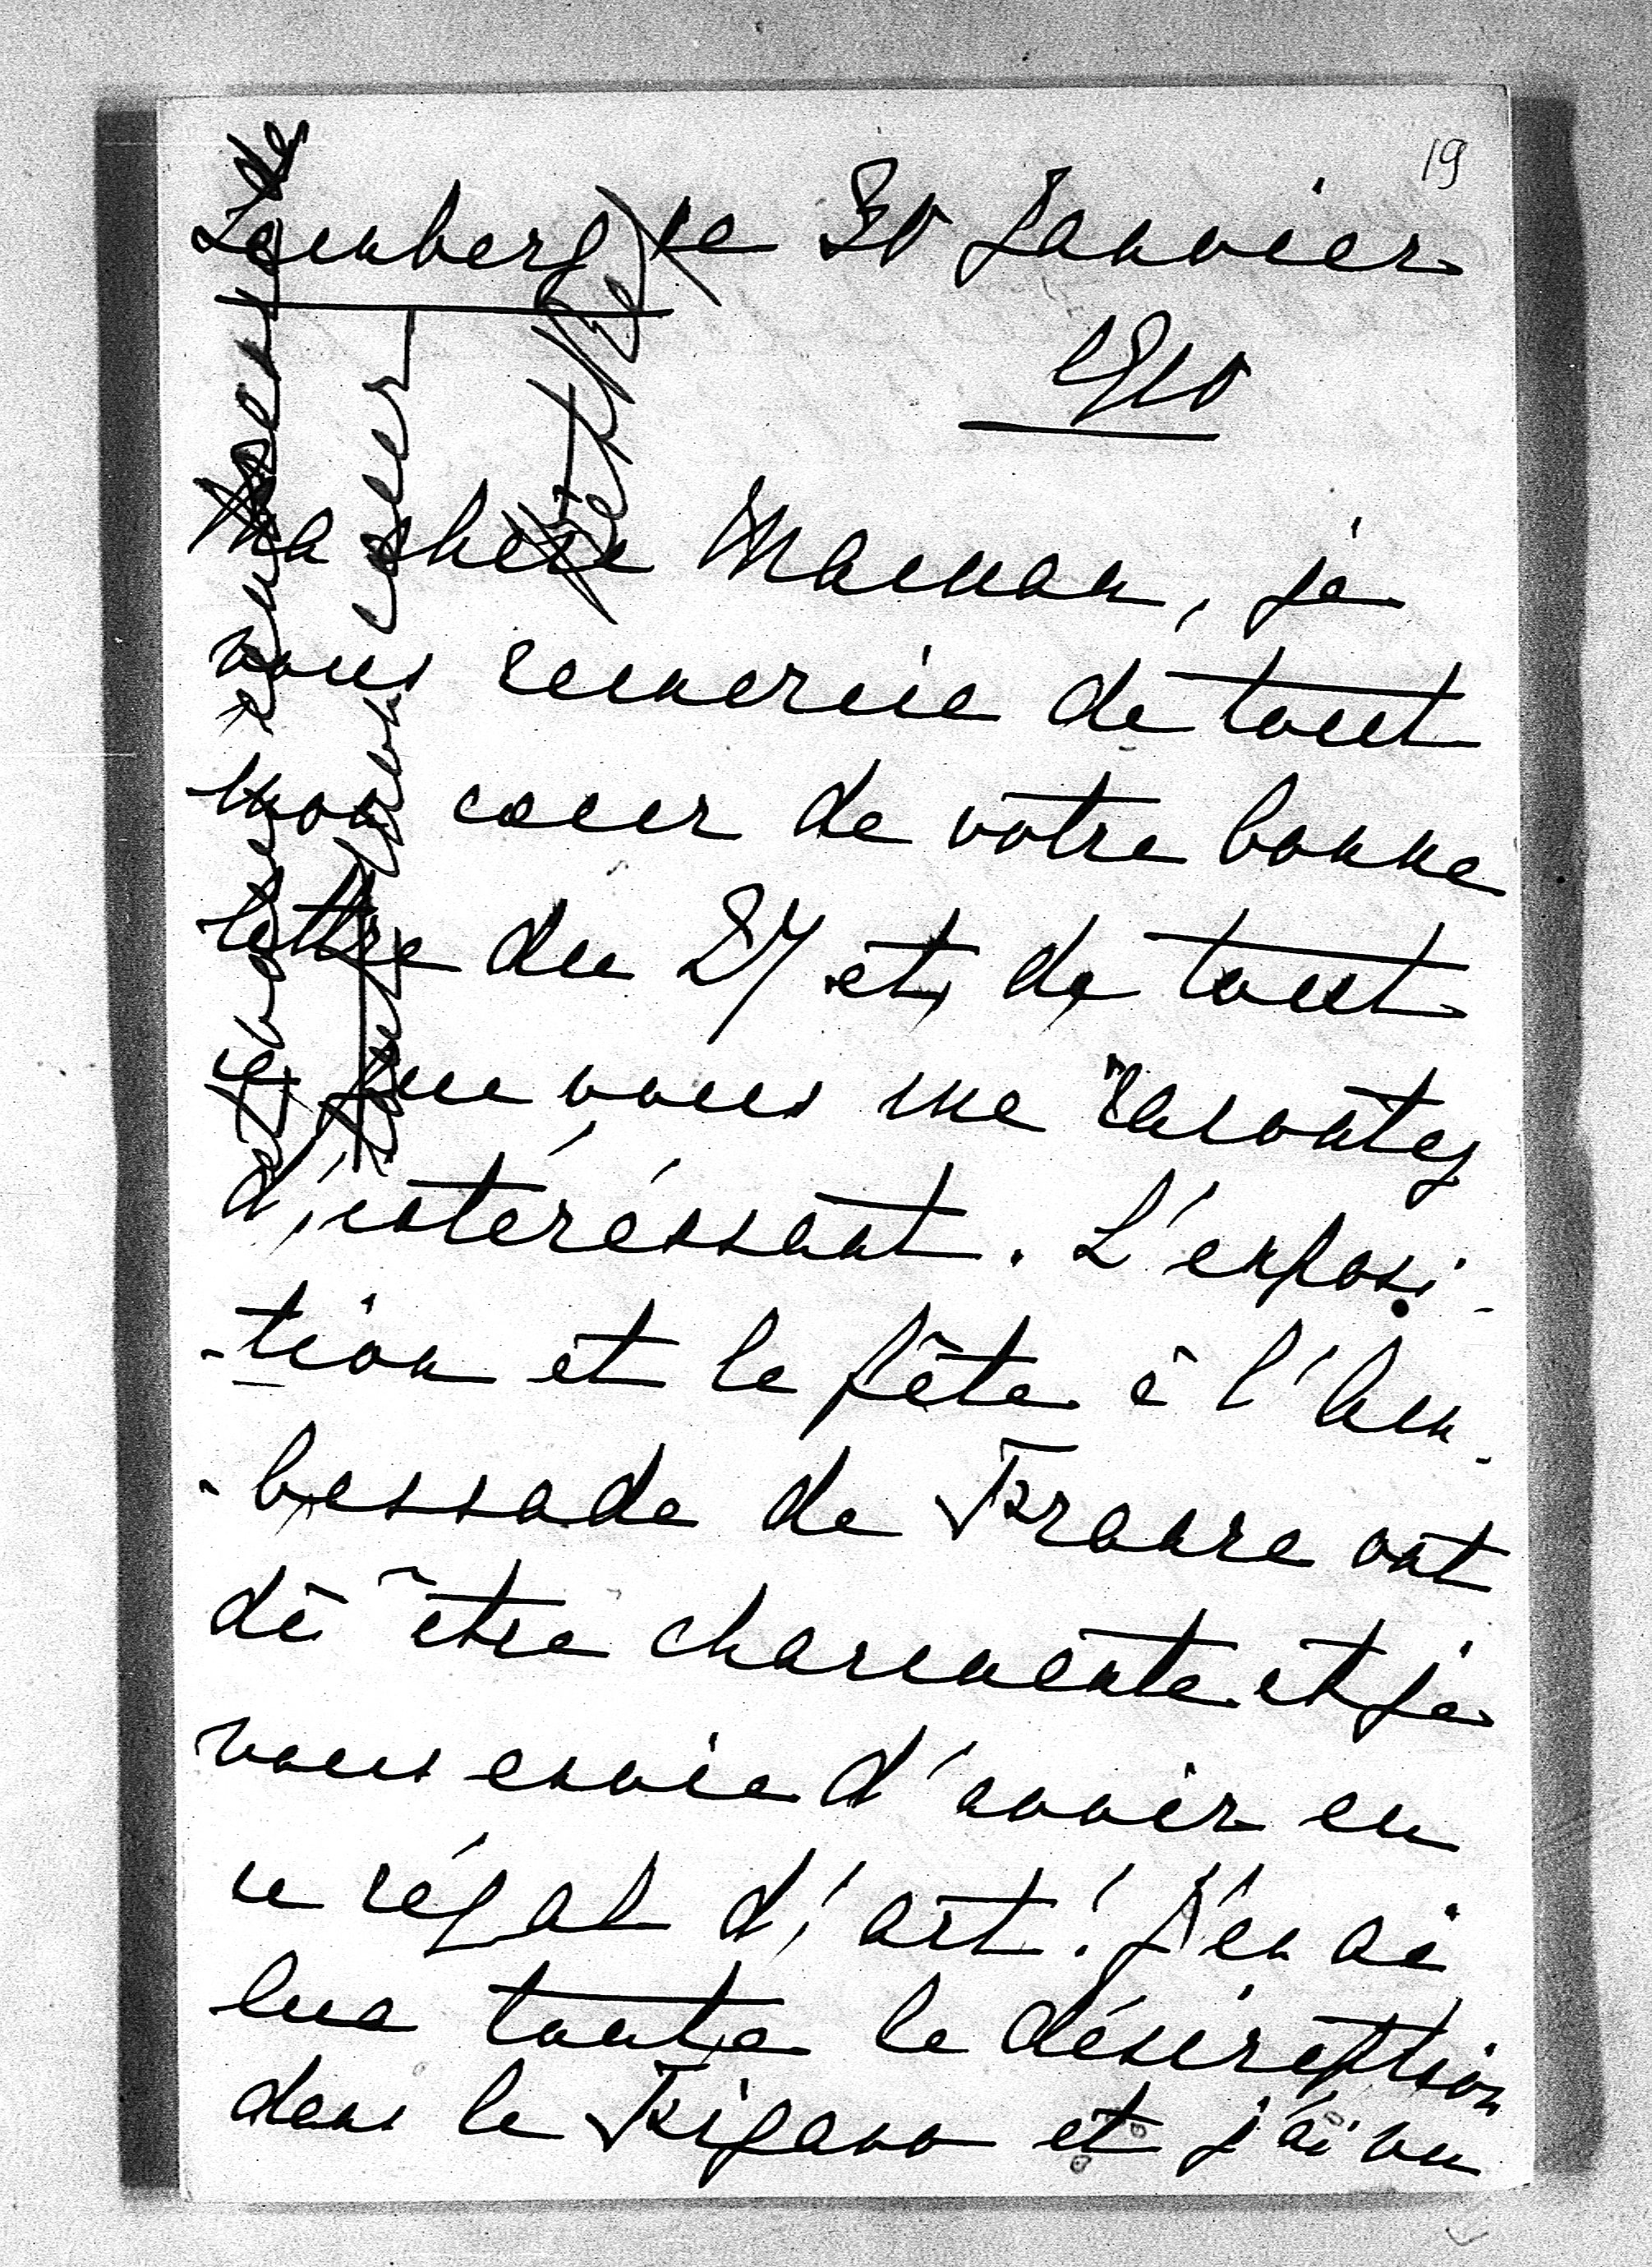 19
Lemberg le 30 Janvier
1910
Ma chère Maman, je
vous remercie de tout
mon coeur de votre bonne
lettre du 27 et de tout
ce que vous me racontez
d'intéréssant. L'exposi-
-tion et la fête à l'Am-
-bassade de France ont
dû être charmante et je
vous envie d'avoir eu
ce régal d'art! J'en ai
lue toute la déscription
dans le Figaro et j'ai vu